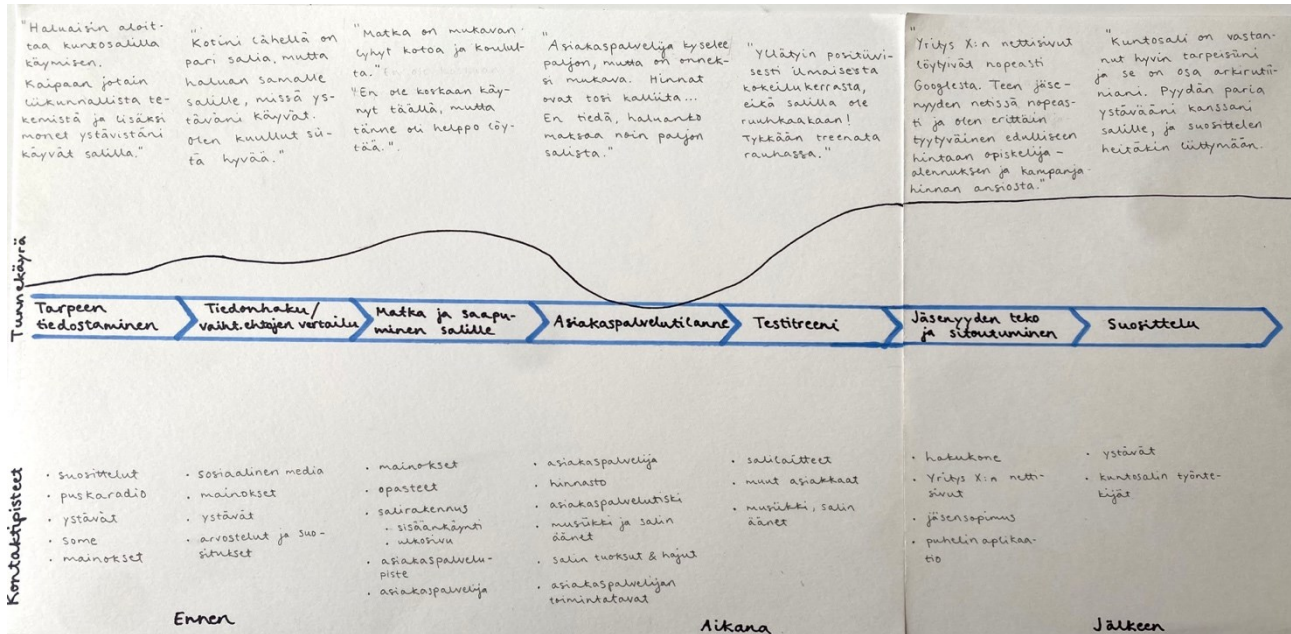 "Haluaisin aloit-
taa kuntosalilla
käymisen.
Kaipaan jotain
liikunnallista te-
kemistä ja lisäksi
monet ystävistäni
käyvät salilla."
"Kotini lähellä on
pari salia, mutta
haluan samalle
salille, missä ys-
täväni käyvät.
Olen kuullut sii-
tä hyvää."
"Matka on mukavan
lyhyt kotoa ja koulul-
ta."
"En ole koskaan käy-
nyt täällä, mutta
tänne oli helppo löy-
tää.".
"Asiakaspalvelija kyselee
paljon, mutta on onnek-
si mukava. Hinnat
ovat tosi kalliita...
En tiedä, haluanko
maksaa noin paljon
salista."
"Yllätyin positiivi-
sesti ilmaisesta
kokeilukerrasta,
eikä salilla ole
ruuhkaakaan!
Tykkään treenata
rauhassa."
"Yritys X:n nettisivut
löytyivät nopeasti
Googlesta. Teen jäse-
nyyden netissä nopeas-
ti ja olen erittäin
tyytyväinen edulliseen
hintaan opiskelija-
alennuksen ja kampanja-
hinnan ansiosta."
"Kuntosali on vastan-
nut hyvin tarpeisiini
ja se on osa arkirutii-
niani. Pyydän paria
ystävääni kanssani
salille, ja suosittelen
heitäkin liittymään.
Tunnekäyrä
Tarpeen
tiedostaminen
Tiedonhaku/
vaiht.ehtojen vertailu
Matka ja saapu-
minen salille
Asiakaspalvelutilanne
Testitreeni
Jäsenyyden teko
ja sitoutuminen
Suosittelu
Kontaktipisteet
• suosittelut
• puskaradio
• ystävät
• some
• mainokset
• sosiaalinen media
• mainokset
• ystävät
• arvostelut ja suo-
situkset
• mainokset
• opasteet
• salirakennus
• sisäänkäynti
• ulkosivu
• asiakaspalvelu-
piste
• asiakaspalvelija
• asiakaspalvelija
• hinnasto
• asiakaspalvelutiski
• musiikki ja salin
äänet
• salin tuoksut & hajut
• asiakaspalvelijan
toimintatavat
• salilaitteet
• muut asiakkaat
• musiikki, salin
äänet
• hakukone
• Yritys X:n netti-
sivut
• jäsensopimus
• puhelin aplikaa-
tio
• ystävät
• kuntosalin työnte-
kijät
Ennen
Aikana
Jälkeen